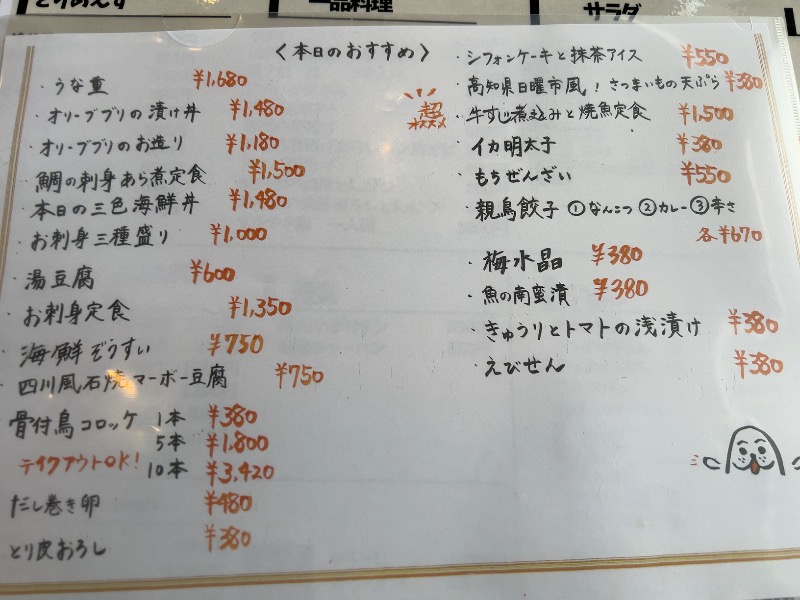 とりあえず
一品料理
サラダ
〈本日のおすすめ〉
・うな重 ¥1,680
・オリーブブリの漬け丼 ¥1,480
・オリーブブリのお造り ¥1,180
・鯛の刺身あら煮定食 ¥1,500
・本日の三色海鮮丼 ¥1,480
・お刺身三種盛り ¥1,000
・湯豆腐 ¥600
・お刺身定食 ¥1,350
・海鮮ぞうすい ¥750
・四川風石焼マーボー豆腐 ¥750
骨付鳥コロッケ 1本 ¥380
5本 ¥1,800
テイクアウトOK! 10本 ¥3,420
だし巻き卵 ¥480
とり皮おろし ¥380
・シフォンケーキと抹茶アイス ¥550
・高知県日曜市風!さつまいもの天ぷら ¥380
超オススメ
・牛すじ煮込みと焼魚定食 ¥1,500
・イカ明太子 ¥380
・もちぜんざい ¥550
・親鳥餃子 ①なんこつ ②カレー ③辛さ
各¥670
・梅水晶 ¥380
・魚の南蛮漬 ¥380
・きゅうりとトマトの浅漬け ¥380
・えびせん ¥380